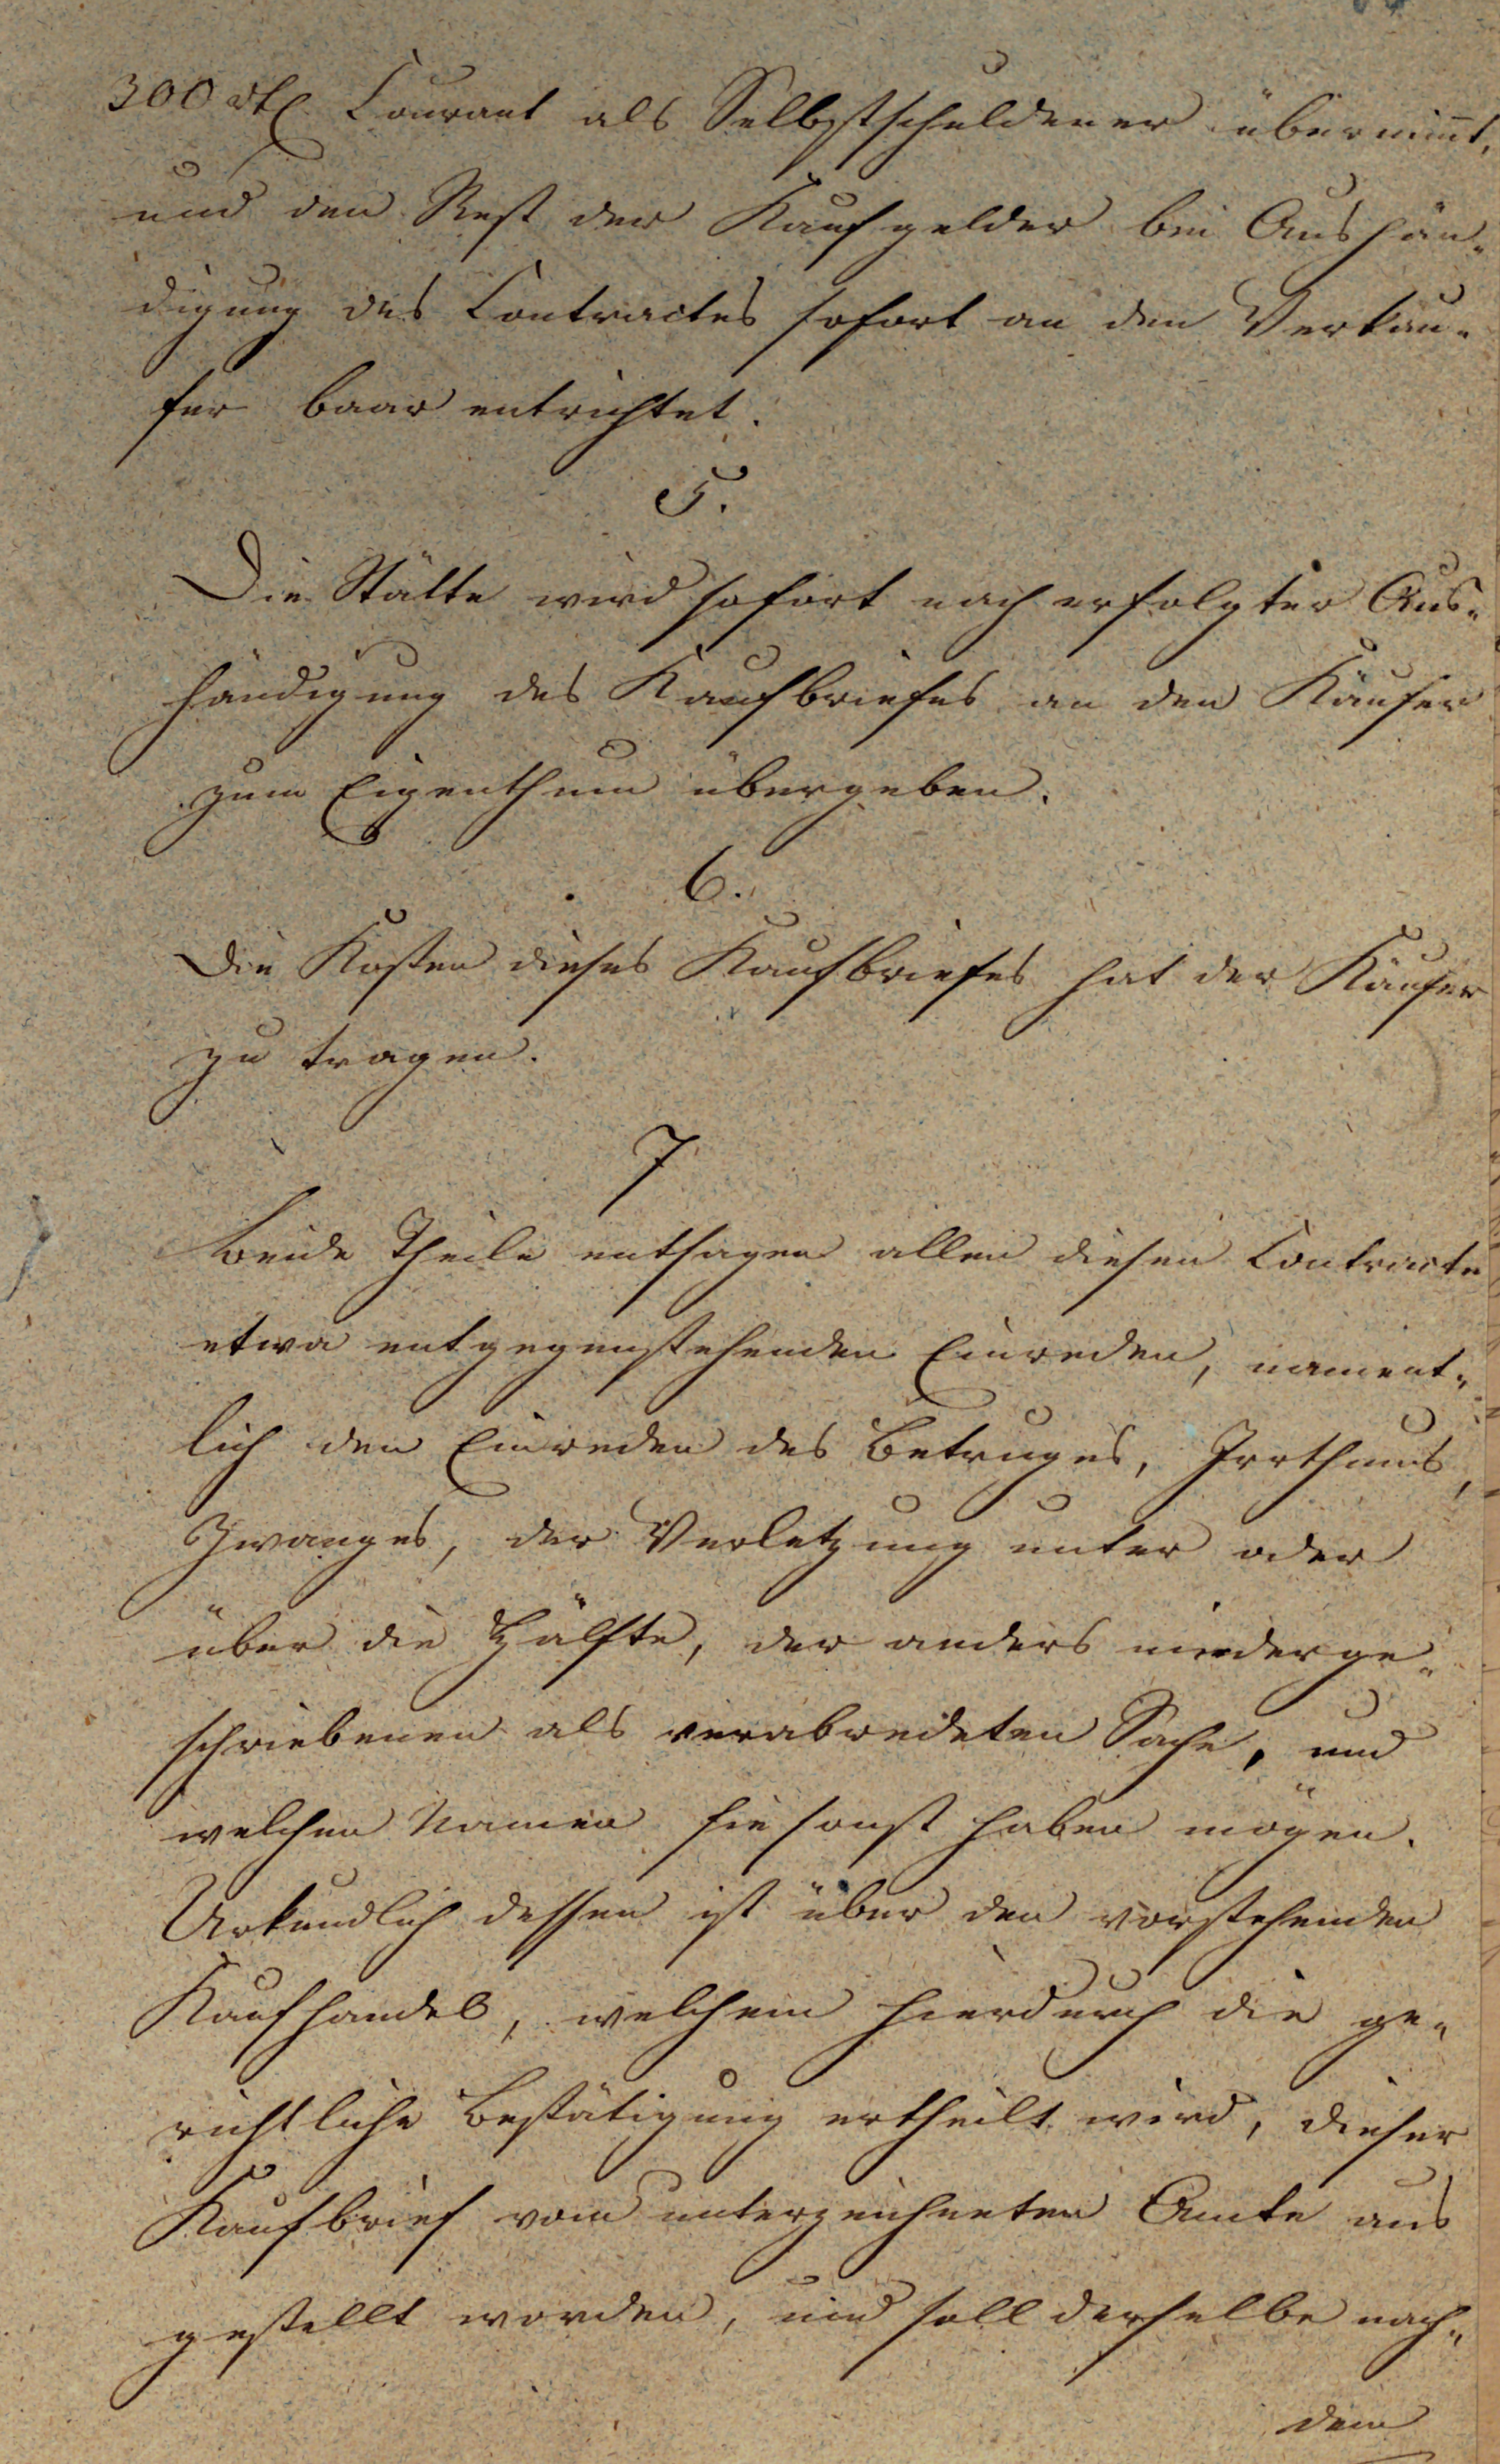 300 rtl. Courant als Selbstschuldener übernim̄t,
und den Rest der Kaufgelder bei Aushän-
digung des Contractes sofort an den Verkäu-
fer baar entrichtet.
5.
Die Stätte wird sofort nach erfolgter Aus-
händigung des Kaufbriefes an den Käufer
zum Eigenthum übergeben.
6.
Die Kosten dieses Kaufbriefes hat der Käufer
zu tragen.
7
Beide Theile entsagen allen diesen Contracte
etwa entgegenstehenden Einreden, nament-
lich den Einreden des Betruges, Irrthums,
Zwanges, der Verletzung unter oder
über die Hälfte, der anders niederge-
schriebenen als verabredeten Sache, und
welchen Namen sie sonst haben mögen.
Urkundlich dessen ist über den vorstehenden
Kaufhandel, welchem hierdurch die ge-
richtliche Bestätigung ertheilt wird, dieser
Kaufbrief vom unterzeichneten Amte aus
gestellt worden, und soll derselbe nach-
dem